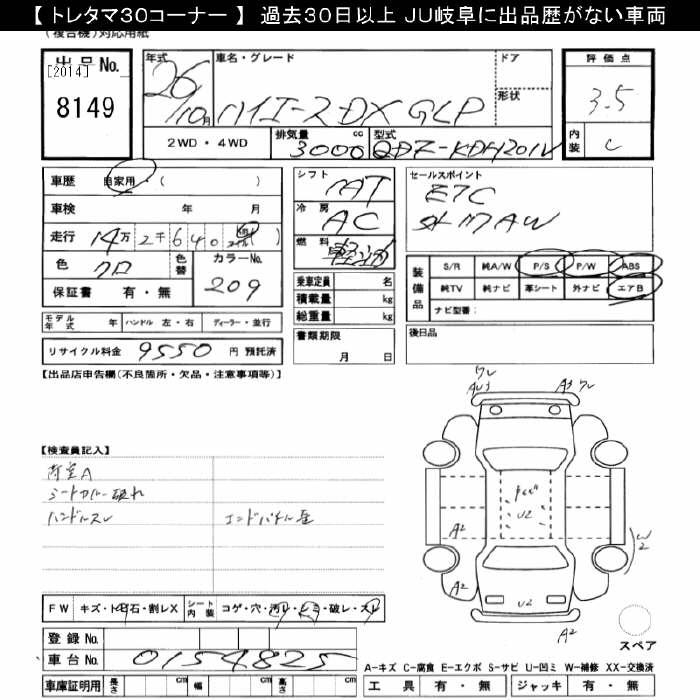 【 トレタマ30コーナー 】 過去30日以上 JU岐阜に出品歴がない車両
(複合機)対応用紙
出品No. [2014] 8149
年式 26 10月
車名・グレード ハイエースDX GLP
ドア
形状
評価点 3.5
内装 C
2WD・4WD
排気量 3000 cc
型式 QDF-KDH201V
車歴 自家用・( )
車検 年 月
走行 14万2千640 km マイル
色 クロ
色替
カラーNo. 209
保証書 有・無
シフト MT
冷房 AC
燃料 軽油
乗車定員 名
積載量 kg
総重量 kg
セールスポイント
ETC
社外AW
装備品 S/R 純A/W P/S P/W ABS
純TV 純ナビ 革シート 外ナビ エアB
ナビ型番:
モデル年式 年 ハンドル 左・右 ディーラー・並行
リサイクル料金 9550 円 預託済
書類期限 月 日
後日品
【出品店申告欄(不良箇所・欠品・注意事項等)】
【検査員記入】
荷室A
シートカバー破れ
ハンドルスレ
ワレ
AU3
A3 ワレ
U2
A2
W2
A2
U2
A2
スペア
FW キズ・トビ石・割レX
シート内装 コゲ・穴・汚レ・シミ・破レ・スレ
登録No.
車台No. 0154825
車庫証明用 長さ cm 幅 cm 高さ cm
A-キズ C-腐食 E-エクボ S-サビ U-凹ミ W-補修 XX-交換済
工具 有・無 ジャッキ 有・無